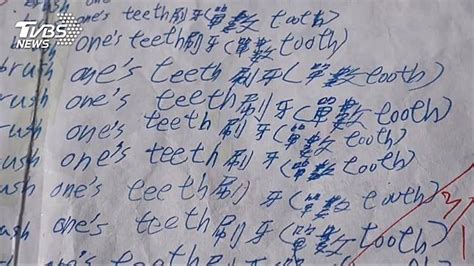 TVBS
NEWS
one's teeth刷牙(單數tooth)
rush one's teeth刷牙(單數tooth)
rush one's teeth刷牙(單數tooth)
rush one's teeth刷牙(單數tooth)
ush one's teeth刷牙(單數tooth)
ush one's teeth刷牙(單數tooth)
one's teeth刷牙(單數tooth)
one's teeth刷牙(單數tooth)